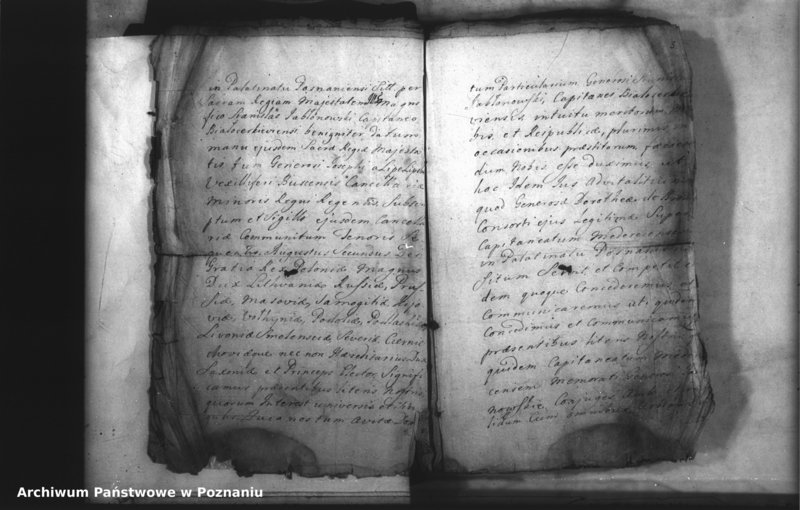 in Palatinatu Posnaniensi Sitt. per
Sacram Regiam Majestatem Magni
fico Stanislao Jabłonowski Capitaneo
Bialocerkieviensi benigniter datum
manu ejusdem Sacræ Regiæ Majesta
tis tum Generosi Josephi a Lipe Lipski
Vexilliferi Cancellariæ
Minoris Regni Regentis Subscri
ptum et Sigillo ejusdem Cancella
riæ Communitum Tenoris Se
quentis. Augustus Secundus Dei
Gratia Rex Poloniæ Magnus
Dux Lithvaniæ Russiæ, Prus
siæ, Masoviæ, Samogitiæ Kijo
viæ, Volhyniæ, Podoliæ, Podlachiæ
Livoniæ Smolensciæ Severiæ Czernie
choviæque nec non Hæreditarius Dux
Saxoniæ et Princeps Elector. Signifi
camus præsentibus literis Nostris
quorum Interest universis et sin
gulis
tum Particularium Generosi
Jabłonowski, Capitanei Bialocerkie
viensis intuitu meritorum
bis, et Reipublicæ, plurimis
occasionibus præstitorum,
dum Nobis esse duximus ut
hac Idem Jus Advitalitium
quod Generosæ Dorotheæ de
Consorti ejus Legitimæ Super
Capitaneatum
in Palatinatu Posnaniensi
Situm Servit et Competit
dem quoque Concederemus et
Communicaremus uti quidem
Concedimus et Communicamus
præsentibus literis Nostris
quidem Capitaneatum
censem Memorati Generosi
Conjuges
lidum Cum omnibus
Archiwum Państwowe w Poznaniu